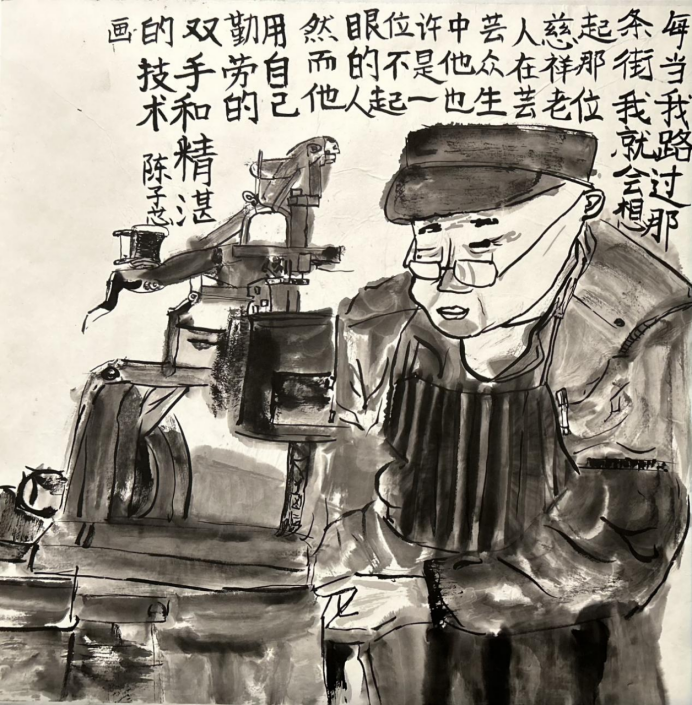 每当我路过那
条街我就会想
起那位
慈祥老
人在芸
芸众生
中他也
许是一
位不起
眼的人
然而他
用自己
勤劳的
双手和精湛
的技术 陈子芯
画